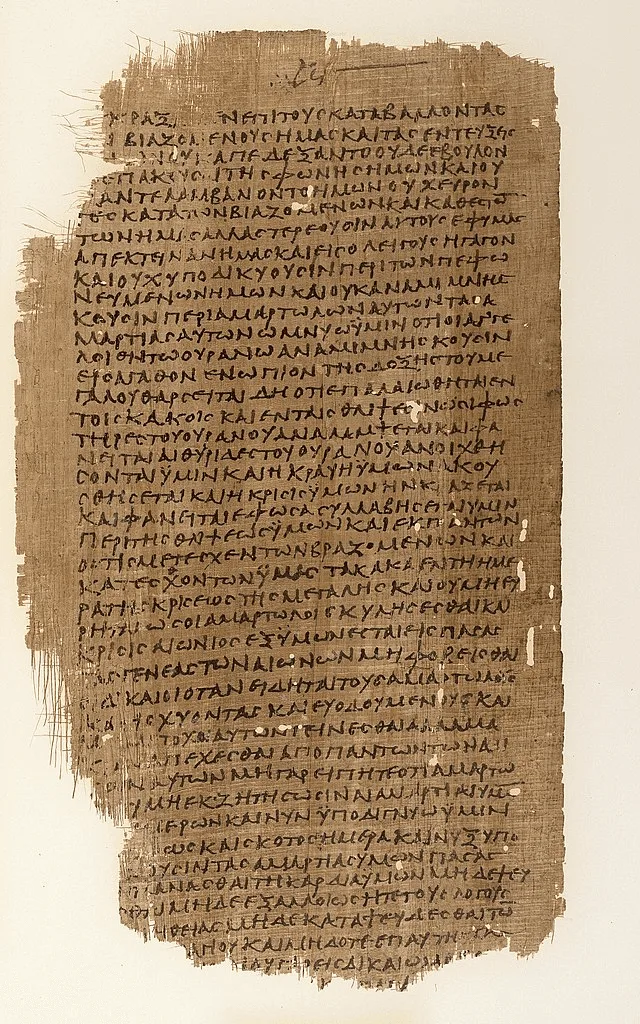 ΚΡΑΖ ΝΕΠΙΤΟΥΣΚΑΤΑΒΑΛΛΟΝΤΑΣ
ΒΙΑΖΟΜΕΝΟΥΣΗΜΑΣΚΑΙΤΑΣΕΝΤΕΥΞΕΙΣ
ΑΠΕΔΕΞΑΝΤΟΟΥΔΕΕΒΟΥΛΟΝ
ΕΠΑΚΟΥΣ ΤΗΣΦΩΝΗΣΗΜΩΝΚΑΙΟΥ
ΑΝΤΕΛΑΜΒΑΝΟΝΤΟΗΜΩΝΟΥΧΕΥΡΟΝ
ΤΕΣΚΑΤΑΤΩΝΒΙΑΖΟΜΕΝΩΝΚΑΙΚΑΤΕΣΘΟ
ΤΩΝΗΜΑΣΑΛΛΑΣΤΕΡΕΟΥΣΙΝΑΥΤΟΥΣΕΦΥΜΑΣ
ΑΠΕΚΤΕΙΝΑΝΗΜΑΣΚΑΙΕΙΣΟΛΕΙΓΟΥΣΗΓΑΓΟΝ
ΚΑΙΟΥΧΥΠΟΔΙΚΥΟΥΣΙΝΠΕΡΙΤΩΝΠΕΦΩ
ΝΕΥΜΕΝΩΝΗΜΩΝΚΑΙΟΥΚΑΝΑΜΙΜΝΗΣ
ΚΟΥΣΙΝΠΕΡΙΑΜΑΡΤΩΛΩΝΑΥΤΩΝΤΑΣΑ
ΜΑΡΤΙΑΣΑΥΤΩΝΩΜΝΥΩΫΜΙΝΟΤΙΟΙΑΓΓΕ
ΛΟΙΕΝΤΩΟΥΡΑΝΩΑΝΑΜΙΜΝΗΣΚΟΥΣΙΝ
ΕΙΣΑΓΑΘΟΝΕΝΩΠΙΟΝΤΗΣΔΟΞΗΣΤΟΥΜΕ
ΓΑΛΟΥΘΑΡΣΕΙΤΑΙΔΗΟΤΙΕΠΑΛΑΙΩΘΗΤΑΙΕΝ
ΤΟΙΣΚΑΚΟΙΣΚΑΙΕΝΤΑΙΣΘΛΙΨΕΣΙΝΩΣΙΦΩΣ
ΤΗΡΕΣΤΟΥΟΥΡΑΝΟΥΑΝΑΛΑΜΨΕΤΑΙΚΑΙΦΑ
ΝΕΙΤΑΙΑΙΘΥΡΙΔΕΣΤΟΥΟΥΡΑΝΟΥΑΝΟΙΧΘΗ
ΣΟΝΤΑΙΫΜΙΝΚΑΙΗΚΡΑΥΓΗΫΜΩΝΑΚΟΥ
ΣΘΗΣΕΤΑΙΚΑΙΗΚΡΙΣΙΣΫΜΩΝΗΝΚΡΑΖΕΤΑΙ
ΚΑΙΦΑΝΕΙΤΑΙΕΦΩΣΑΣΥΛΛΑΒΗΣΕΤΑΙΫΜΙΝ
ΠΕΡΙΤΗΣΘΛΙΨΕΩΣΫΜΩΝΚΑΙΕΚΠΑΝΤΩΝ
ΟΣΤΙΣΜΕΤΕΣΧΕΝΤΩΝΒΙΑΖΟΜΕΝΩΝΚΑΙ
ΚΑΤΕΣΘΟΝΤΩΝΫΜΑΣΤΑΚΑΚΑΕΝΤΗΗΜΕ
ΡΑΤΗΣΚΡΙΣΕΩΣΤΗΣΜΕΓΑΛΗΣΚΑΙΟΥΜΗΕΥ
ΡΗΤΑΙΩΣΟΙΑΜΑΡΤΩΛΟΙΣΚΥΛΗΣΕΣΘΑΙΚΑΙ
ΚΡΙΣΙΣΑΙΩΝΙΟΣΕΞΫΜΩΝΕΣΤΑΙΕΙΣΠΑΣΑΣ
ΤΑΣΓΕΝΕΑΣΤΩΝΑΙΩΝΩΝΜΗΦΟΒΕΙΣΘΑΙ
ΔΙΚΑΙΟΙΟΤΑΝΕΙΔΗΤΑΙΤΟΥΣΑΜΑΡΤΩΛΟΥΣ
ΣΧΥΟΝΤΑΣΚΑΙΕΥΟΔΟΥΜΕΝΟΥΣΚΑΙ
ΤΟΧΟΙΑΥΤΩΝΓΕΙΝΕΣΘΑΙΑΛΛΑΜΑ
ΑΠΕΧΕΣΘΑΙΑΠΟΠΑΝΤΩΝΤΩΝΑΔΙ
ΑΥΤΩΝΜΗΓΑΡΕΙΠΗΤΕΟΤΙΑΜΑΡΤΩ
ΜΗΕΚΖΗΤΗΣΩΣΙΝΑΙΑΜΑΡΤΙΑΙΥΜΩ
ΜΕΡΩΝΚΑΙΝΥΝΫΠΟΔΙΓΝΥΩΫΜΙΝ
ΩΣΚΑΙΣΚΟΤΟΣΗΜΕΡΑΚΑΙΝΥΞΥΠΟ
ΟΥΣΙΝΤΑΣΑΜΑΡΤΙΑΣΥΜΩΝΠΑΣΑΣ
ΠΛΑΝΑΣΘΑΙΤΗΚΑΡΔΙΑΥΜΩΝΜΗΔΕΨΕΥ
ΜΗΔΕΕΞΑΛΛΟΙΩΣΗΤΕΤΟΥΣΛΟΓΟΥΣ
ΘΕΙΑΣΜΗΔΕΚΑΤΑΨΕΥΔΕΣΘΑΙΤΩ
ΚΑΙΜΗΔΟΤΕΕΠΑΙ
ΔΙΚΑΙΩ